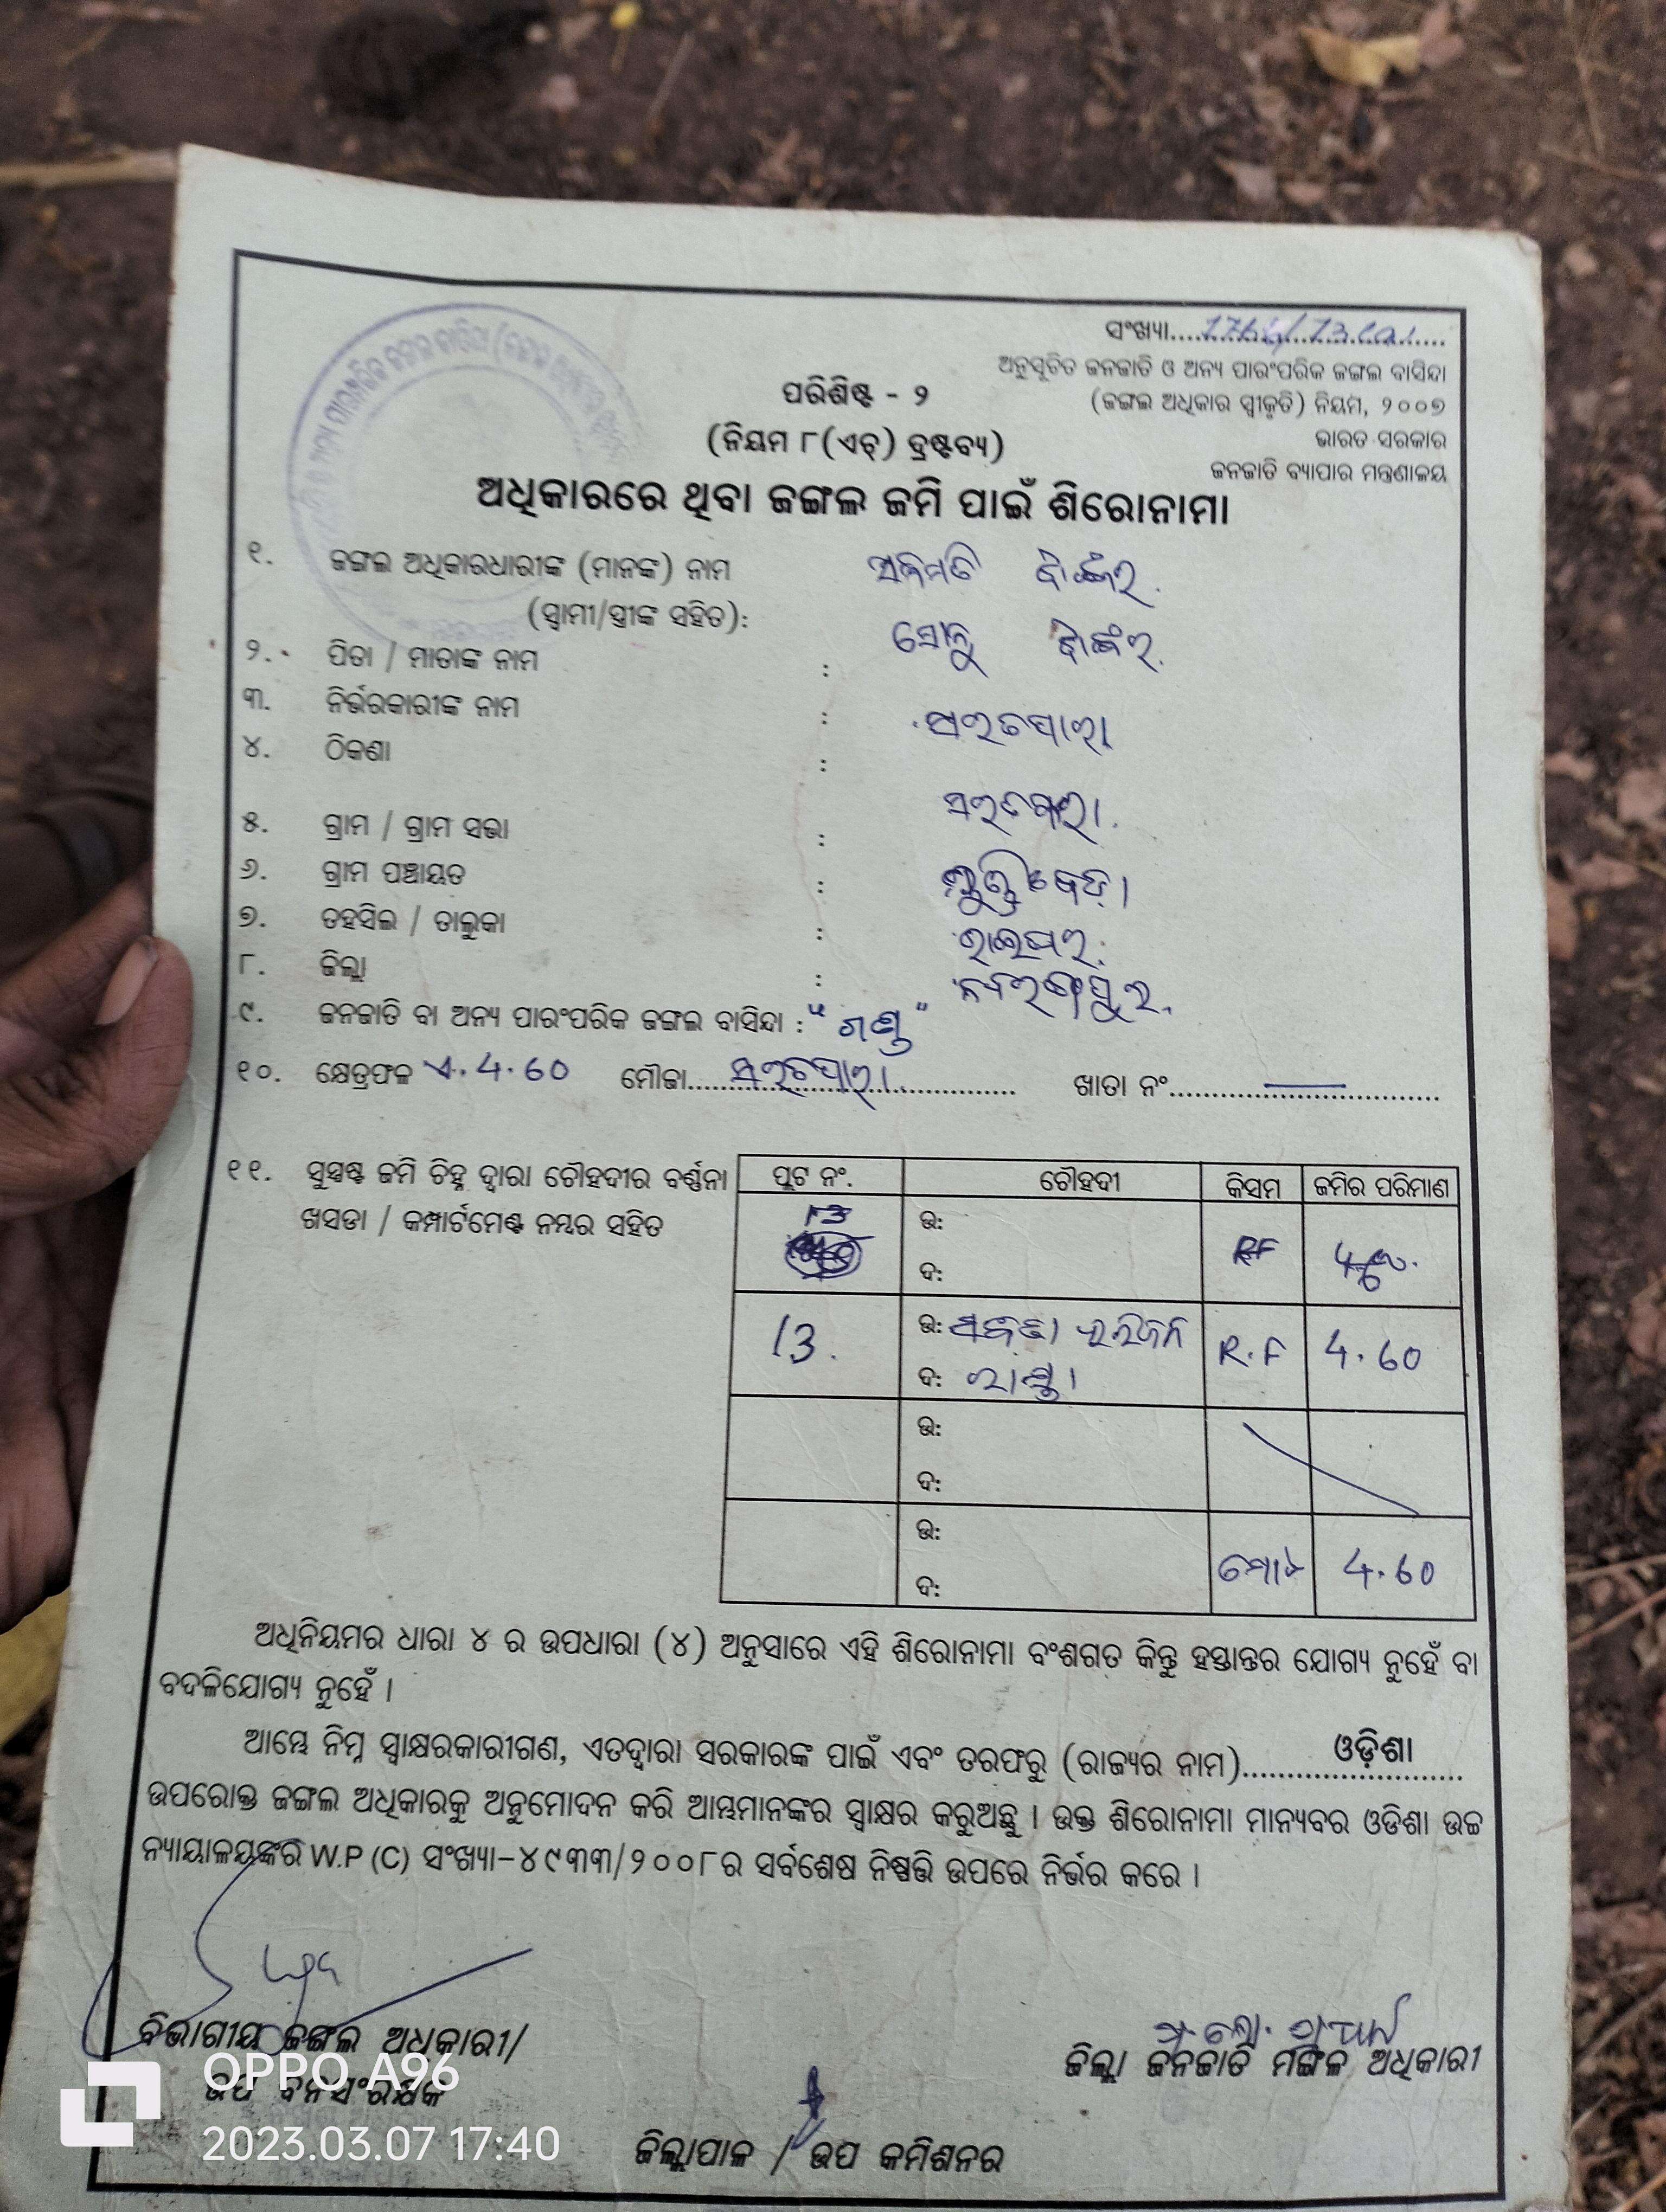 ସଂଖ୍ୟା
ଅନୁସୂଚିତ ଜନଜାତି ଓ ଅନ୍ୟ ପାରଂପରିକ ଜଙ୍ଗଲ ବାସିନ୍ଦା
(ଜଙ୍ଗଲ ଅଧିକାର ସ୍ୱୀକୃତି) ନିୟମ, ୨୦୦୭
ଭାରତ ସରକାର
ଜନଜାତି ବ୍ୟାପାର ମନ୍ତ୍ରଣାଳୟ
ପରିଶିଷ୍ଟ - ୨
(ନିୟମ ୮(ଏଚ୍) ଦ୍ରଷ୍ଟବ୍ୟ)
ଅଧିକାରରେ ଥିବା ଜଙ୍ଗଲ ଜମି ପାଇଁ ଶିରୋନାମା
୧. ଜଙ୍ଗଲ ଅଧିକାରଧାରୀଙ୍କ (ମାନଙ୍କ) ନାମ
(ସ୍ୱାମୀ/ସ୍ତ୍ରୀଙ୍କ ସହିତ):
୨. ପିତା / ମାତାଙ୍କ ନାମ :
୩. ନିର୍ଭରକାରୀଙ୍କ ନାମ :
୪. ଠିକଣା :
୫. ଗ୍ରାମ / ଗ୍ରାମ ସଭା :
୬. ଗ୍ରାମ ପଞ୍ଚାୟତ :
୭. ତହସିଲ / ତାଲୁକା : ରାଇଘର.
୮. ଜିଲ୍ଲା : ନବରଙ୍ଗପୁର.
୯. ଜନଜାତି ବା ଅନ୍ୟ ପାରଂପରିକ ଜଙ୍ଗଲ ବାସିନ୍ଦା : "ଗଣ୍ଡ"
୧୦. କ୍ଷେତ୍ରଫଳ ଏ. 4.60 ମୌଜା ଖାତା ନଂ
୧୧. ସୁସ୍ପଷ୍ଟ ଜମି ଚିହ୍ନ ଦ୍ୱାରା ଚୌହଦୀର ବର୍ଣ୍ଣନା
ଖସଡା / କମ୍ପାର୍ଟମେଣ୍ଟ ନମ୍ବର ସହିତ
ପ୍ଲଟ ନଂ. ଚୌହଦୀ କିସମ ଜମିର ପରିମାଣ
13 ଉ: RF
ଦ:
13. ଉ: ହରିଜନ R.F 4.60
ଦ: ରାସ୍ତା
ଉ:
ଦ:
ଉ: ମୋଟ 4.60
ଦ:
ଅଧିନିୟମର ଧାରା ୪ ର ଉପଧାରା (୪) ଅନୁସାରେ ଏହି ଶିରୋନାମା ବଂଶଗତ କିନ୍ତୁ ହସ୍ତାନ୍ତର ଯୋଗ୍ୟ ନୁହେଁ ବା
ବଦଳିଯୋଗ୍ୟ ନୁହେଁ ।
ଆମ୍ଭେ ନିମ୍ନ ସ୍ୱାକ୍ଷରକାରୀଗଣ, ଏତଦ୍ୱାରା ସରକାରଙ୍କ ପାଇଁ ଏବଂ ତରଫରୁ (ରାଜ୍ୟର ନାମ) ଓଡ଼ିଶା
ଉପରୋକ୍ତ ଜଙ୍ଗଲ ଅଧିକାରକୁ ଅନୁମୋଦନ କରି ଆମ୍ଭମାନଙ୍କର ସ୍ୱାକ୍ଷର କରୁଅଛୁ । ଉକ୍ତ ଶିରୋନାମା ମାନ୍ୟବର ଓଡିଶା ଉଚ୍ଚ
ନ୍ୟାୟାଳୟଙ୍କର W.P (C) ସଂଖ୍ୟା-୪୯୩୩/୨୦୦୮ର ସର୍ବଶେଷ ନିଷ୍ପତ୍ତି ଉପରେ ନିର୍ଭର କରେ ।
ବିଭାଗୀୟ ଜଙ୍ଗଲ ଅଧିକାରୀ/
ଉପ ବନସଂରକ୍ଷକ
ଜିଲ୍ଲା ଜନଜାତି ମଙ୍ଗଳ ଅଧିକାରୀ
ଜିଲ୍ଲାପାଳ / ଉପ କମିଶନର
OPPO A96
2023.03.07 17:40